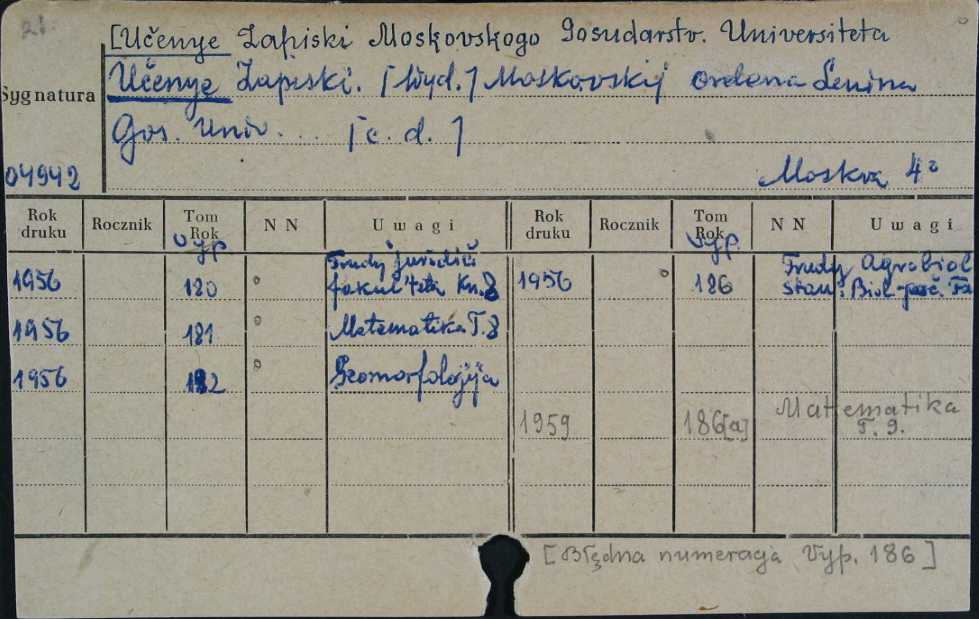 21.
[Učenye Zapiski Moskovskogo Gosudarstv. Universiteta
Učenye Zapiski. [Wyd.] Moskovskij ordena Lenina
Gos. Univ. ... [c. d.]
Sygnatura
04942
Moskva 4°
Rok druku Rocznik Tom Rok Vyp. N N Uwagi Rok druku Rocznik Tom Rok Vyp. N N Uwagi
1956 180 Trudy juridič. fakul'teta Kn. 8 1956 186 Trudy Agrobiol. stan. Biol.-poč. Fa
1956 181 Matematika T. 8
1956 182 Geomorfologija
1959 186[a] Matematika T. 9.
[Błędna numeracja Vyp. 186]